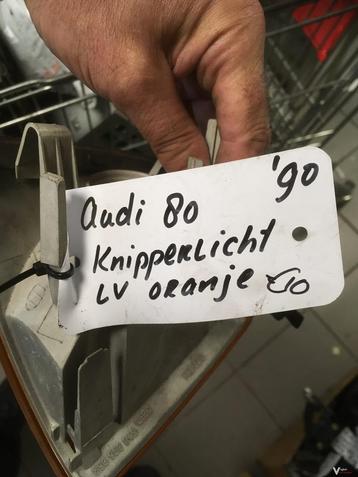 Audi 80 '90
Knipperlicht
LV oranje €10